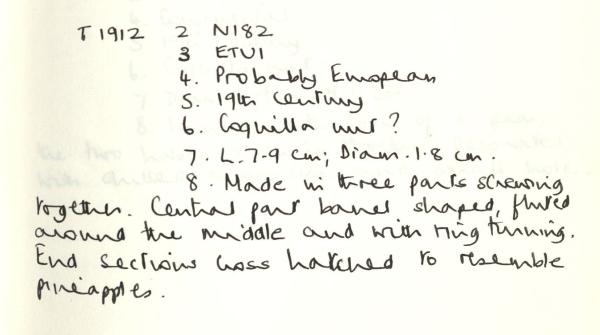 T1912 2 N182
3 ETUI
4. Probably European
5. 19th Century
6. Coquilla nut?
7. L. 7.9 cm; Diam. 1.8 cm.
8. Made in three parts screwing
together. Central part barrel shaped, fluted
around the middle and with ring turning.
End sections cross hatched to resemble
pineapples.